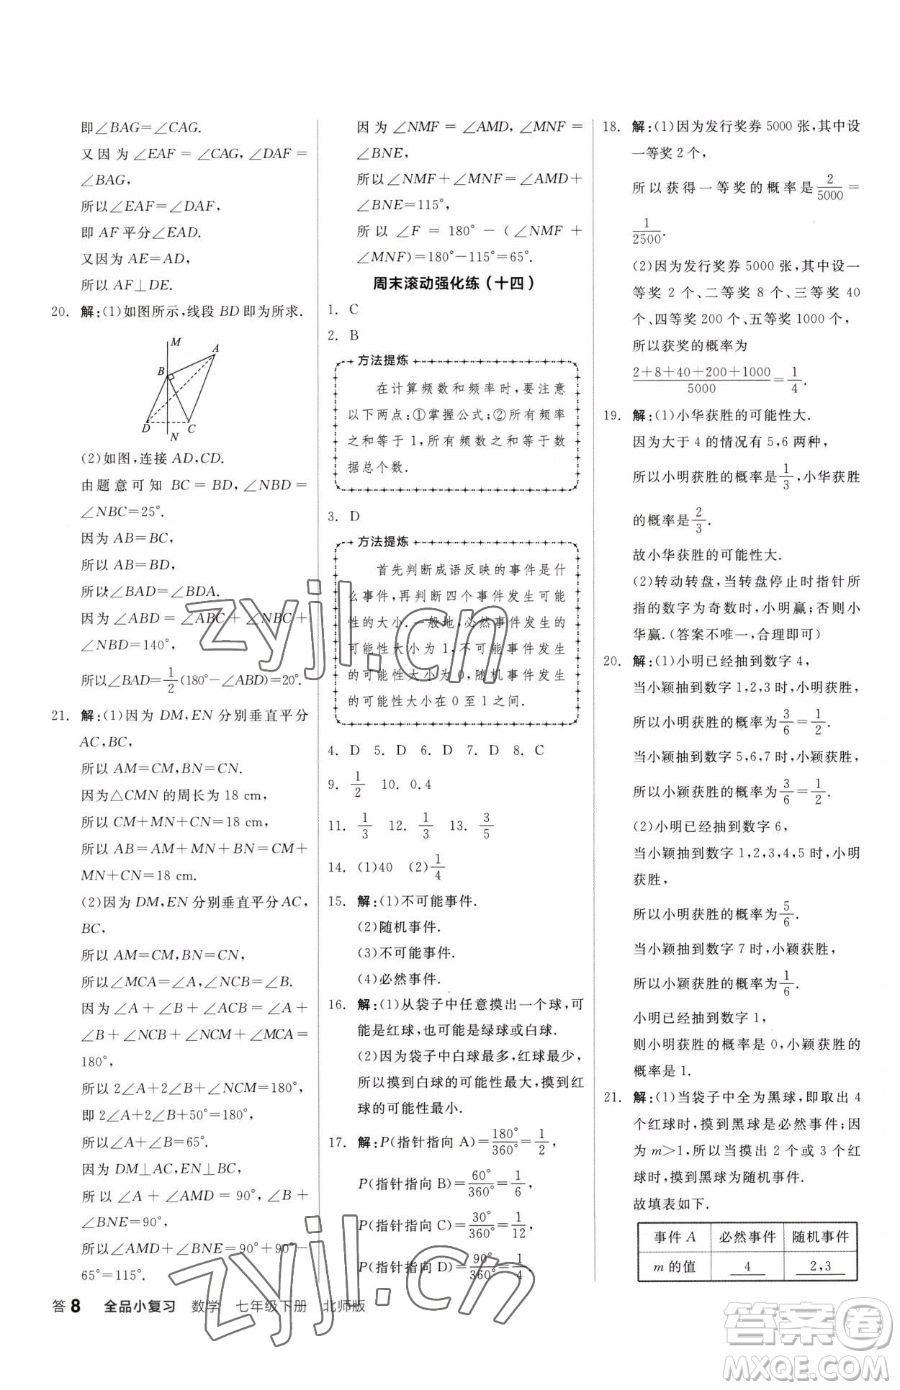 即∠BAG=∠CAG.
又因为∠EAF=∠CAG,∠DAF=
∠BAG,
所以∠EAF=∠DAF,
即 AF平分∠EAD.
又因为 AE=AD,
所以 AF⊥DE.
20. 解:(1)如图所示,线段 BD 即为所求.
M
A
B
D
N
C
(2)如图,连接 AD,CD.
由题意可知 BC=BD,∠NBD=
∠NBC=25°.
因为 AB=BC,
所以 AB=BD,
所以∠BAD=∠BDA.
因为∠ABD=∠ABC+∠NBC+
∠NBD=140°,
所以∠BAD=1/2(180°-∠ABD)=20°.
21. 解:(1)因为 DM,EN 分别垂直平分
AC,BC,
所以 AM=CM,BN=CN.
因为△CMN 的周长为 18 cm,
所以 CM+MN+CN=18 cm,
所以 AB=AM+MN+BN=CM+
MN+CN=18 cm.
(2)因为 DM,EN 分别垂直平分 AC,
BC,
所以 AM=CM,BN=CN,
所以∠MCA=∠A,∠NCB=∠B.
因为∠A+∠B+∠ACB=∠A+
∠B+∠NCB+∠MCN+∠MCA=
180°,
所以 2∠A+2∠B+∠MCN=180°,
即 2∠A+2∠B+50°=180°,
所以∠A+∠B=65°.
因为 DM⊥AC,EN⊥BC,
所以∠A+∠AMD=90°,∠B+
∠BNE=90°,
所以∠AMD+∠BNE=90°+90°-
65°=115°.
因为∠NMF=∠AMD,∠MNF=
∠BNE,
所以∠NMF+∠MNF=∠AMD+
∠BNE=115°,
所以∠F=180°-(∠NMF+
∠MNF)=180°-115°=65°.
周末滚动强化练(十四)
1. C
2. B
方法提炼
在计算频数和频率时,要注意
以下两点:①掌握公式;②所有频率
之和等于 1,所有频数之和等于数
据总个数.
3. D
方法提炼
首先判断成语反映的事件是什
么事件,再判断四个事件发生可能
性的大小.一般地,必然事件发生的
可能性大小为 1,不可能事件发生
的可能性大小为 0,随机事件发生
的可能性大小在 0 至 1 之间.
4. D 5. D 6. D 7. D 8. C
9. 1/2 10. 0.4
11. 1/3 12. 1/3 13. 3/5
14. (1)40 (2)1/4
15. 解:(1)不可能事件.
(2)随机事件.
(3)不可能事件.
(4)必然事件.
16. 解:(1)从袋子中任意摸出一个球,可
能是红球,也可能是绿球或白球.
(2)因为袋子中白球最多,红球最少,
所以摸到白球的可能性最大,摸到红
球的可能性最小.
17. 解:P(指针指向 A)=180°/360°=1/2,
P(指针指向 B)=60°/360°=1/6,
P(指针指向 C)=30°/360°=1/12,
P(指针指向 D)=90°/360°=1/4.
18. 解:(1)因为发行奖券 5000 张,其中设
一等奖 2 个,
所以获得一等奖的概率是 2/5000=
1/2500.
(2)因为发行奖券 5000 张,其中设一
等奖 2 个、二等奖 8 个、三等奖 40
个、四等奖 200 个、五等奖 1000 个,
所以获奖的概率为
(2+8+40+200+1000)/5000=1/4.
19. 解:(1)小华获胜的可能性大.
因为大于 4 的情况有 5,6 两种,
所以小明获胜的概率是1/3,小华获胜
的概率是2/3.
故小华获胜的可能性大.
(2)转动转盘,当转盘停止时指针所
指的数字为奇数时,小明赢;否则小
华赢.(答案不唯一,合理即可)
20. 解:(1)小明已经抽到数字 4,
当小颖抽到数字 1,2,3 时,小明获胜,
所以小明获胜的概率为3/6=1/2.
当小颖抽到数字 5,6,7 时,小颖获胜,
所以小颖获胜的概率为3/6=1/2.
(2)小明已经抽到数字 6,
当小颖抽到数字 1,2,3,4,5 时,小明
获胜,
所以小明获胜的概率为5/6.
当小颖抽到数字 7 时,小颖获胜,
所以小颖获胜的概率为1/6.
小明已经抽到数字 1,
则小明获胜的概率是 0,小颖获胜的
概率是 1.
21. 解:(1)当袋子中全为黑球,即取出 4
个红球时,摸到黑球是必然事件;因
为 m>1,所以当摸出 2 个或 3 个红
球时,摸到黑球为随机事件.
故填表如下.
事件 A 必然事件 随机事件
m 的值 4 2,3
答 8 全品小复习 数学 七年级下册 北师版
zyjl.cn
zyjl.cn
答案圈
MXQE.COM